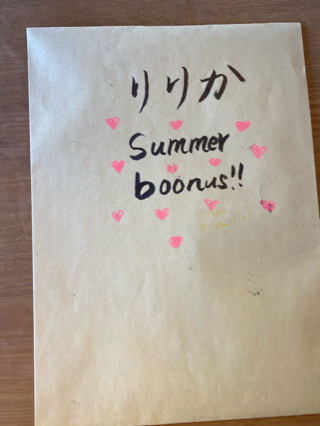 りりか
Summer
boonus!!